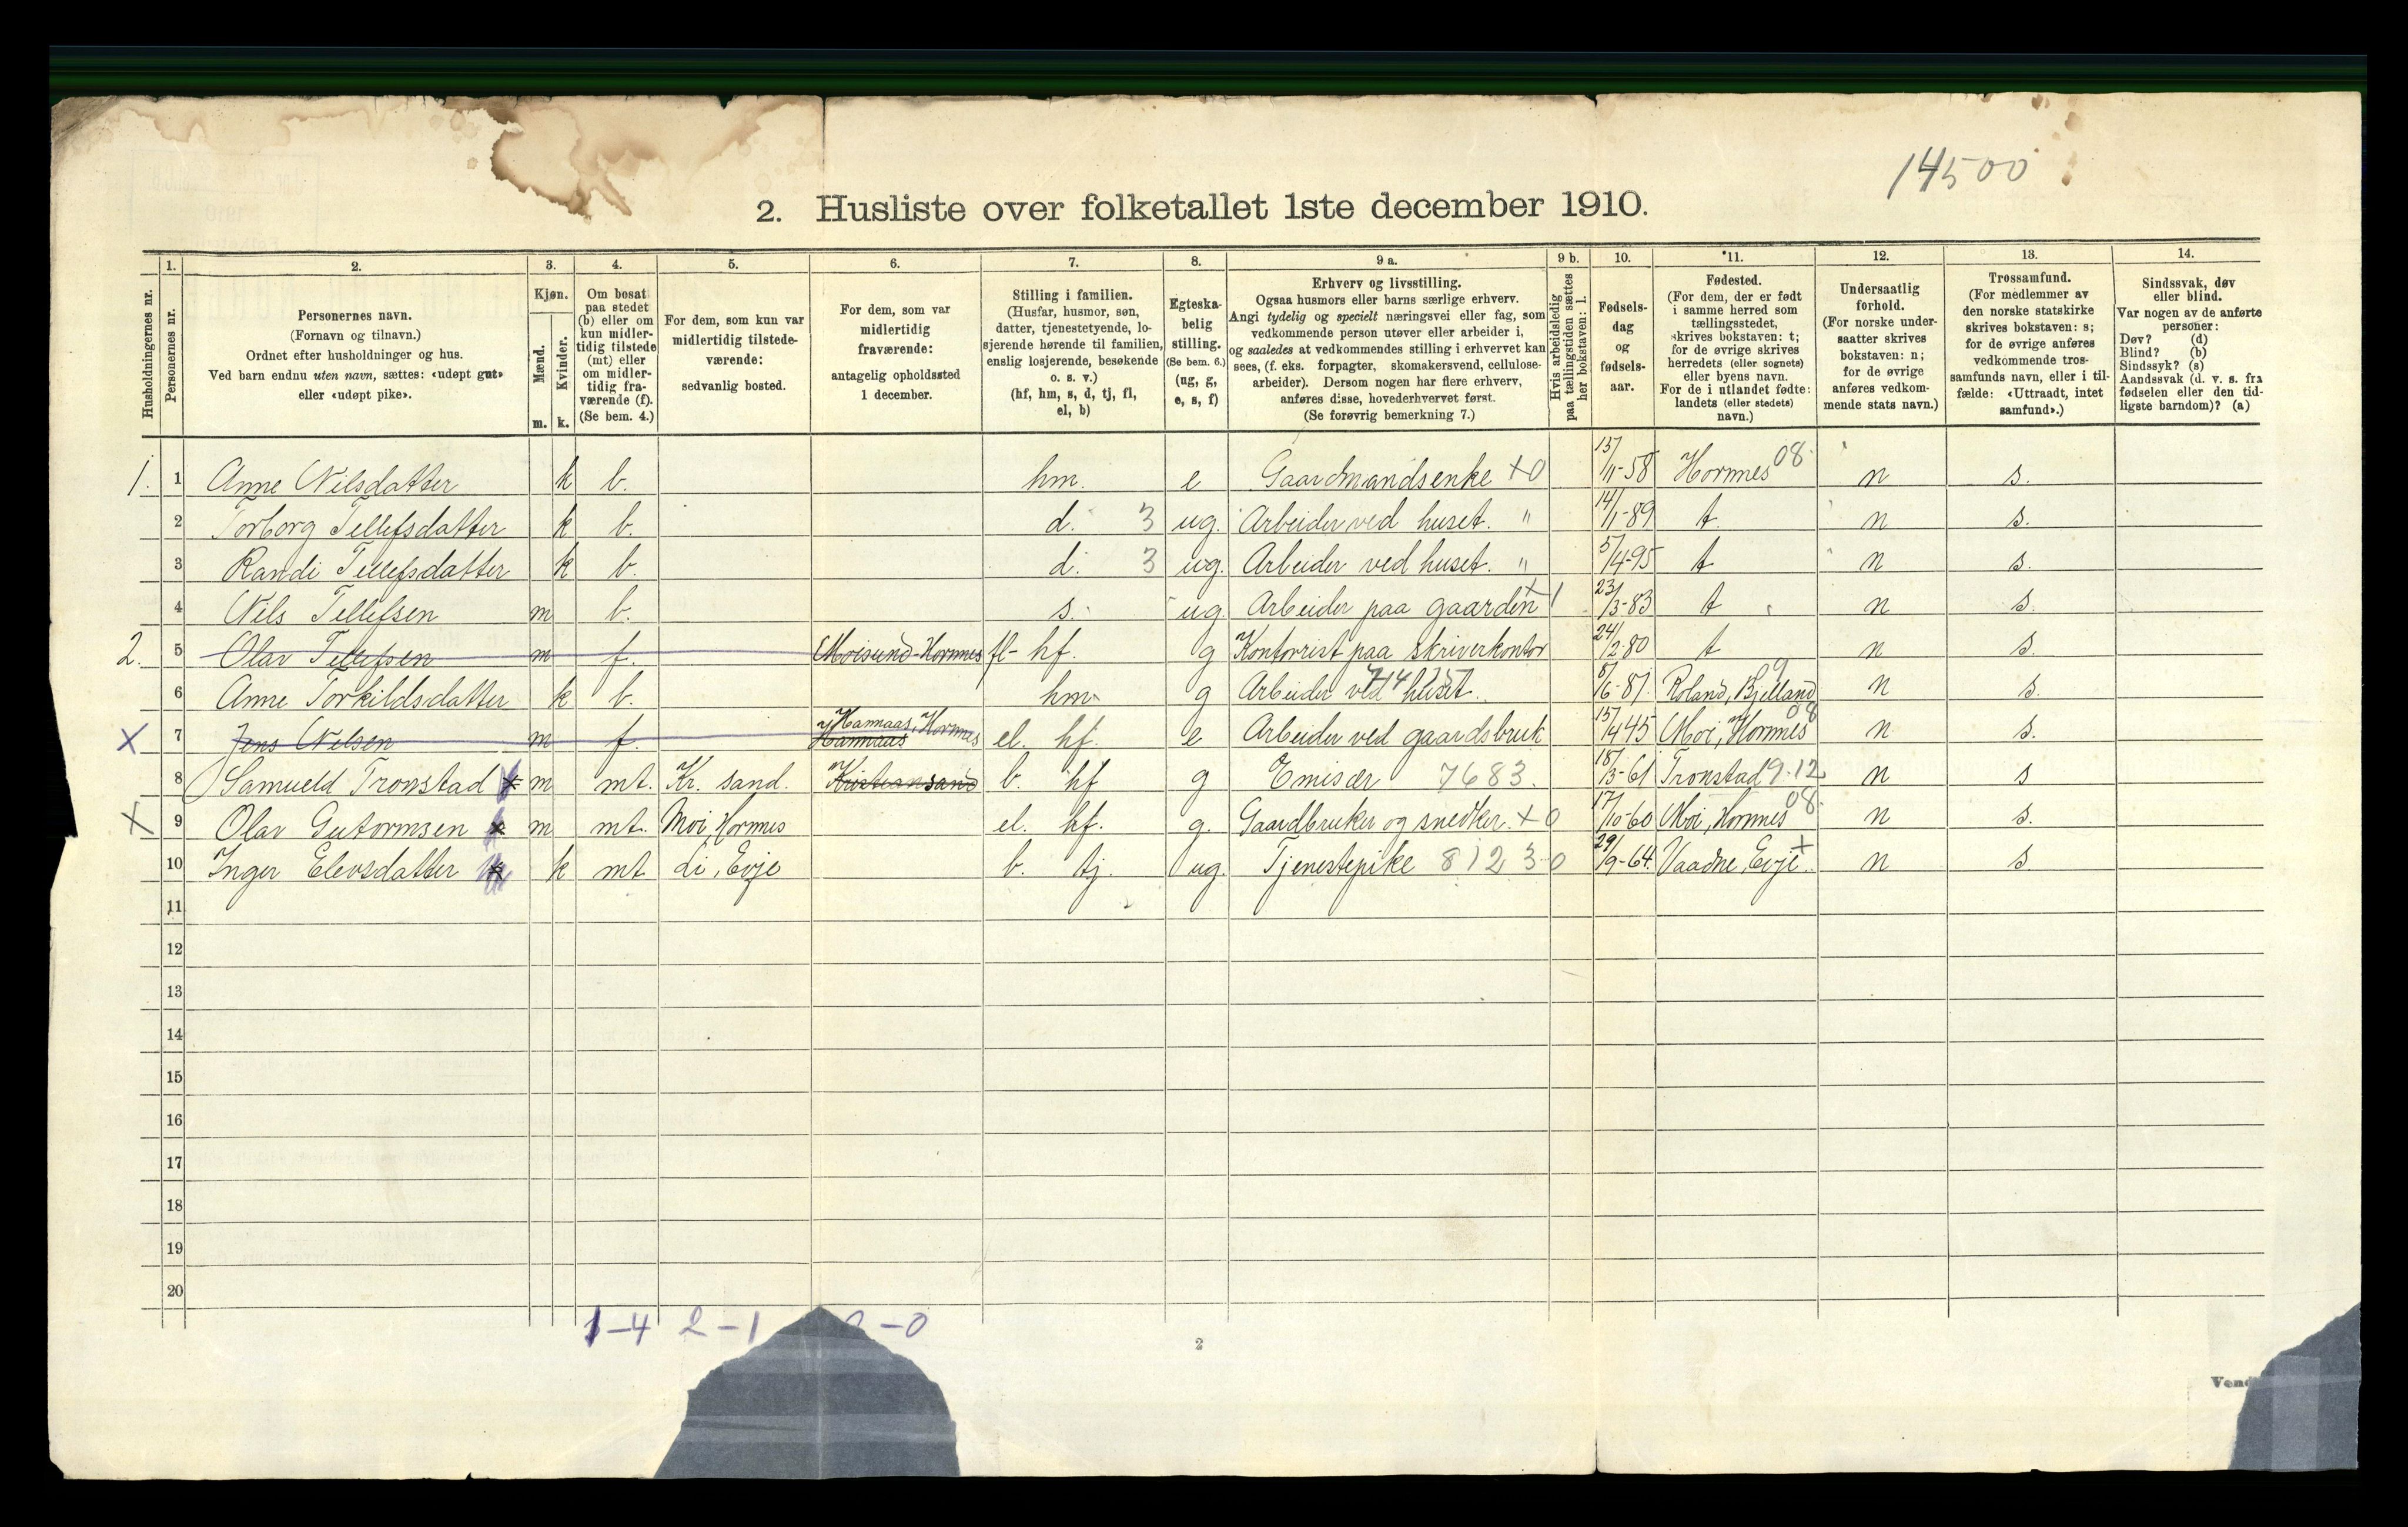 14500
2. Husliste over folketallet 1ste december 1910.
Husholdningernes nr.
1.
Personernes nr.
2.
Personernes navn.
(Fornavn og tilnavn.)
Ordnet efter husholdninger og hus.
Ved barn endnu uten navn, sættes: «udøpt gut»
eller «udøpt pike».
3.
Kjøn.
Mænd.
Kvinder.
m. k.
4.
Om bosat
paa stedet
(b) eller om
kun midler-
tidig tilstede
(mt) eller
om midler-
tidig fra-
værende (f).
(Se bem. 4.)
5.
For dem, som kun var
midlertidig tilstede-
værende:
sedvanlig bosted.
6.
For dem, som var
midlertidig
fraværende:
antagelig opholdssted
1 december.
7.
Stilling i familien.
(Husfar, husmor, søn,
datter, tjenestetyende, lo-
sjerende hørende til familien,
enslig losjerende, besøkende
o. s. v.)
(hf, hm, s, d, tj, fl,
el, b)
8.
Egteska-
belig
stilling.
(Se bem. 6.)
(ug, g,
e, s, f)
9 a.
Erhverv og livsstilling.
Ogsaa husmors eller barns særlige erhverv.
Angi tydelig og specielt næringsvei eller fag, som
vedkommende person utøver eller arbeider i,
og saaledes at vedkommendes stilling i erhvervet kan
sees, (f. eks. forpagter, skomakersvend, cellulose-
arbeider). Dersom nogen har flere erhverv,
anføres disse, hovederhvervet først.
(Se forøvrig bemerkning 7.)
9 b.
Hvis arbeidsledig
paa tællingstiden sættes
her bokstaven: l.
10.
Fødsels-
dag
og
fødsels-
aar.
11.
Fødested.
(For dem, der er født
i samme herred som
tællingsstedet,
skrives bokstaven: t;
for de øvrige skrives
herredets (eller sognets)
eller byens navn.
For de i utlandet fødte:
landets (eller stedets)
navn.)
12.
Undersaatlig
forhold.
(For norske under-
saatter skrives
bokstaven: n;
for de øvrige
anføres vedkom-
mende stats navn.)
13.
Trossamfund.
(For medlemmer av
den norske statskirke
skrives bokstaven: s;
for de øvrige anføres
vedkommende tros-
samfunds navn, eller i til-
fælde: «Uttraadt, intet
samfund».)
14.
Sindssvak, døv
eller blind.
Var nogen av de anførte
personer:
Døv? (d)
Blind? (b)
Sindssyk? (s)
Aandssvak (d. v. s. fra
fødselen eller den tid-
ligste barndom)? (a)
1. 1 Anne Nilsdatter k b. hm. e Gaardmandsenke +0 15/11-58 Hornnes 08 n s.
2 Torborg Tellefsdatter k b. d. 3 ug. Arbeider ved huset. " 14/1-89 t n s.
3 Randi Tellefsdatter k b. d. 3 ug. Arbeider ved huset. " 5/4-95 t n s.
4 Nils Tellefsen m b. s. ug. Arbeider paa gaarden + 1 23/3-83 t n s.
2. 5 Olav Tellefsen m f. Moisund-Hornnes fl- hf. g Kontorist paa skriverkontor 24/2-80 t n s.
6 Anne Torkildsdatter k b. hm. g Arbeider ved huset. 8/6-81 Roland, Bjelland 09 n s.
X 7 Jens Nilsen m f. Hannaas Hannaas, Hornnes el. hf. e Arbeider ved gaardsbruk 15/1 445 Moi, Hornnes 08 n s.
8 Samueld Tronstad x m mt. Kr. sand. Kristiansand b. hf g Emisær 7683. 18/3-61 Tronstad 9.12 n s
X 9 Olav Gutormsen x m mt. Moi, Hornnes el. hf. g. Gaardbruker og snedker. +0 17/10-60 Moi, Hornnes 08. n s.
10 Inger Elevsdatter x k mt Li, Evje b. tj. ug. Tjenestepike 8123-0 29/9-64. Vaadne, Evje + n s
11
12
13
14
15
16
17
18
19
20
1-4 2-1 -0
2
Vend